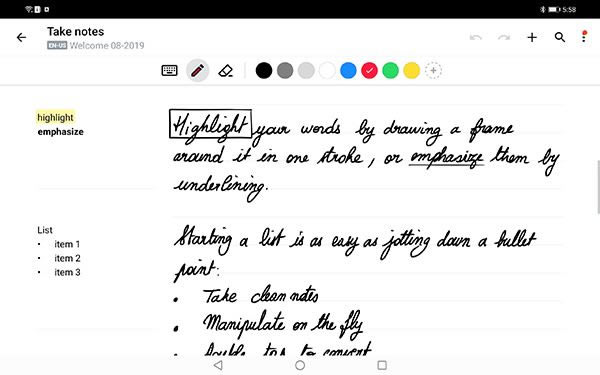 5:58
Take notes
EN-US Welcome 08-2019
highlight
emphasize
Highlight your words by drawing a frame
around it in one stroke, or emphasize them by
underlining.
List
• item 1
• item 2
• item 3
Starting a list is as easy as jotting down a bullet
point:
• Take clean notes
• Manipulate on the fly
• Double tap to convert